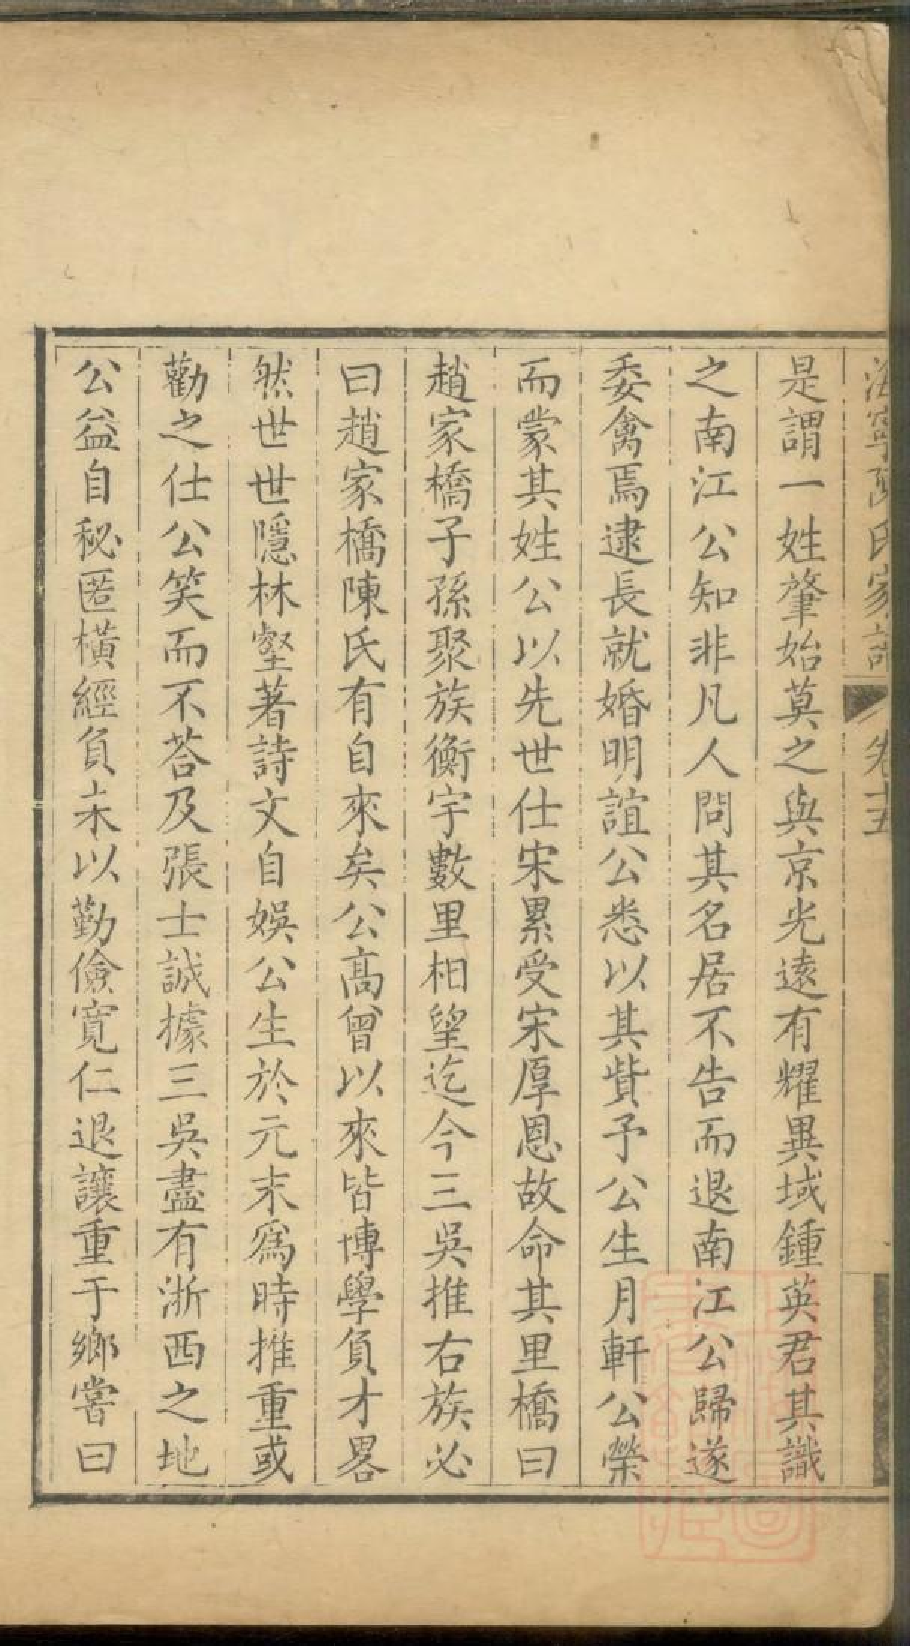 海寧陳氏家譜 卷十五
是謂一姓肇始莫之與京光遠有耀異域鍾英君其識
之南江公知非凡人問其名居不告而退南江公歸遂
委禽焉逮長就婚明誼公悉以其貲予公生月軒公榮
而蒙其姓公以先世仕宋累受宋厚恩故命其里橋曰
趙家橋子孫聚族衡宇數里相望迄今三吳推右族必
曰趙家橋陳氏有自來矣公高曾以來皆博學負才畧
然世世隱林壑著詩文自娛公生於元末爲時推重或
勸之仕公笑而不荅及張士誠據三吳盡有浙西之地
公益自秘匿橫經負耒以勤儉寬仁退讓重于鄉嘗曰